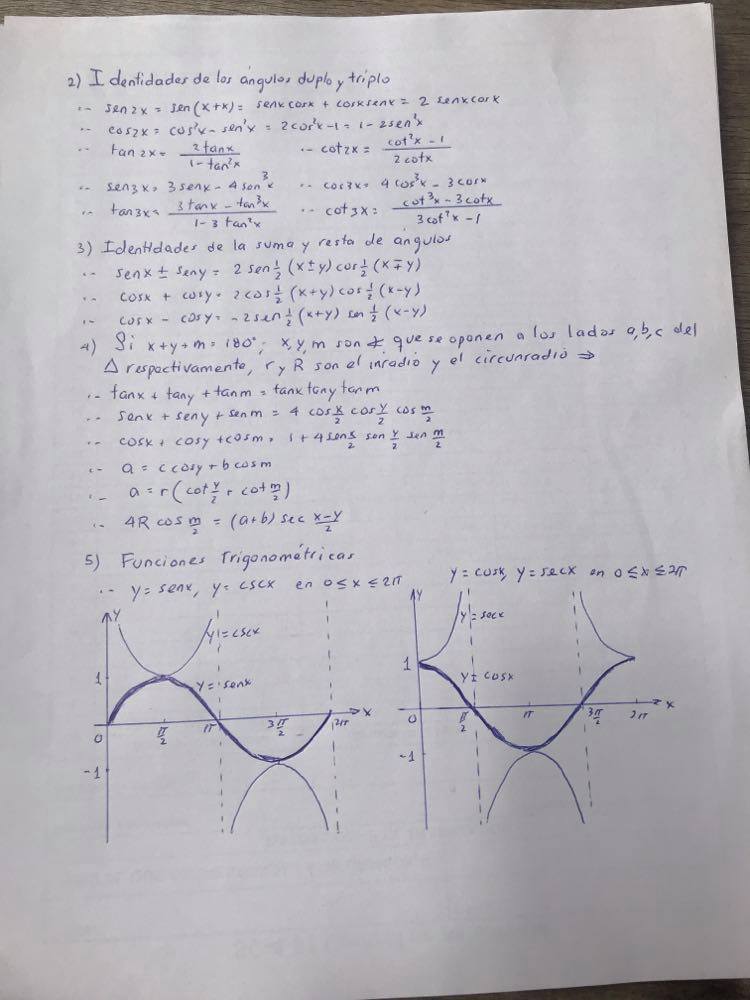 2) Identidades de los ángulos duplo y triplo
·- sen2x = sen(x+x) = senxcosx + cosxsenx = 2 senxcosx
·- cos2x = cos²x - sen²x = 2cos²x - 1 = 1 - 2sen²x
·- tan2x = 2tanx / (1 - tan²x) ·- cot2x = (cot²x - 1) / (2cotx)
·- sen3x = 3senx - 4sen³x ·- cos3x = 4cos³x - 3cosx
·- tan3x = (3tanx - tan³x) / (1 - 3tan²x) ·- cot3x = (cot³x - 3cotx) / (3cot²x - 1)
3) Identidades de la suma y resta de ángulos
·- senx ± seny = 2 sen½(x±y)cos½(x∓y)
·- cosx + cosy = 2cos½(x+y)cos½(x-y)
·- cosx - cosy = -2sen½(x+y)sen½(x-y)
4) Si x+y+m = 180°; x,y,m son ∡ que se oponen a los lados a,b,c del
Δ respectivamente, r y R son el inradio y el circunradio ⇒
·- tanx + tany + tanm = tanxtanytanm
·- senx + seny + senm = 4 cos x/2 cos y/2 cos m/2
·- cosx + cosy + cosm = 1 + 4sen x/2 sen y/2 sen m/2
·- a = ccosy + bcosm
·- a = r(cot y/2 + cot m/2)
·- 4R cos m/2 = (a+b) sec (x-y)/2
5) Funciones Trigonométricas
·- y = senx, y = cscx en 0≤x≤2π
y = cosx, y = secx en 0≤x≤2π
y
y = cscx
1
y = senx
x
0
π/2
π
3π/2
2π
-1
y
y = secx
1
y = cosx
x
0
π/2
π
3π/2
2π
-1